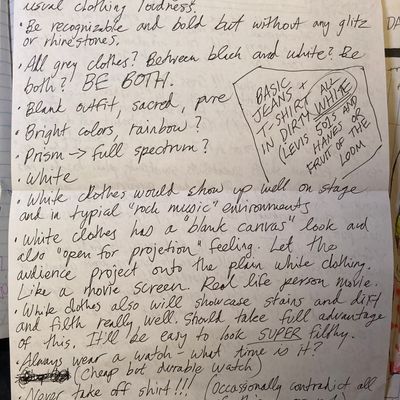 usual clothing loudness.
• Be recognizable and bold but without any glitz
or rhinestones.
• All grey clothes? Between black and white? Be
both? BE BOTH.
• Blank outfit, sacred, pure
• Bright colors, rainbow?
• Prism → full spectrum?
• White
BASIC
JEANS x
T-SHIRT ALL WHITE
IN DIRTY
(LEVIS 501S AND
HANES OR
FRUIT OF THE
LOOM
• White clothes would show up well on stage
and in typial "rock music" environments
• White clothes has a "blank canvas" look and
also "open for projetion" feeling. Let the
audience project onto the plain white clothing.
Like a movie screen. Real life person movie.
• White clothes also will showcase stains and dirt
and filth really well. Should take full advantage
of this. It'll be easy to look SUPER filthy.
• Always wear a watch - what time is it?
(cheap but durable watch)
• Never take off shirt!!! (Occasionally contradict all